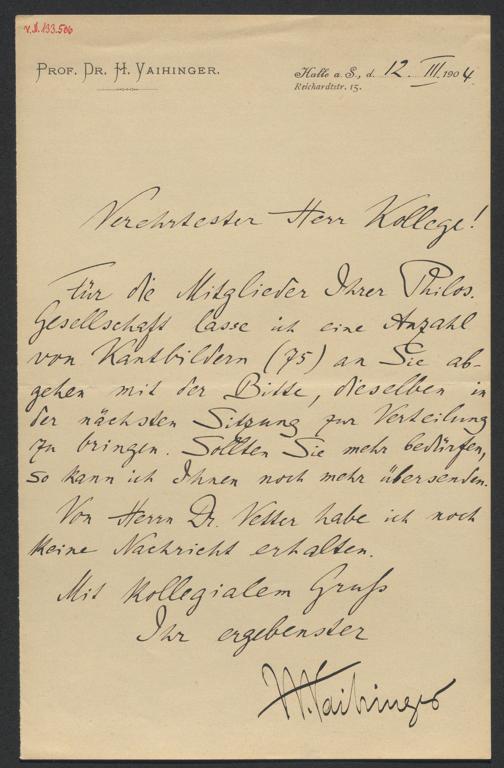 V.A.133.506
PROF. DR. H. VAIHINGER.
Halle a. S., d. 12. III. 1904.
Reichardtstr. 15.
Verehrtester Herr Kollege!
Für die Mitglieder Ihrer Philos.
Gesellschaft lasse ich eine Anzahl
von Kantbildern (75) an Sie ab-
gehen mit der Bitte, dieselben in
der nächsten Sitzung zur Verteilung
zu bringen. Sollten Sie mehr bedürfen,
so kann ich Ihnen noch mehr übersenden.
Von Herrn Dr. Vetter habe ich noch
keine Nachricht erhalten.
Mit kollegialem Gruß
Ihr ergebenster
H. Vaihinger